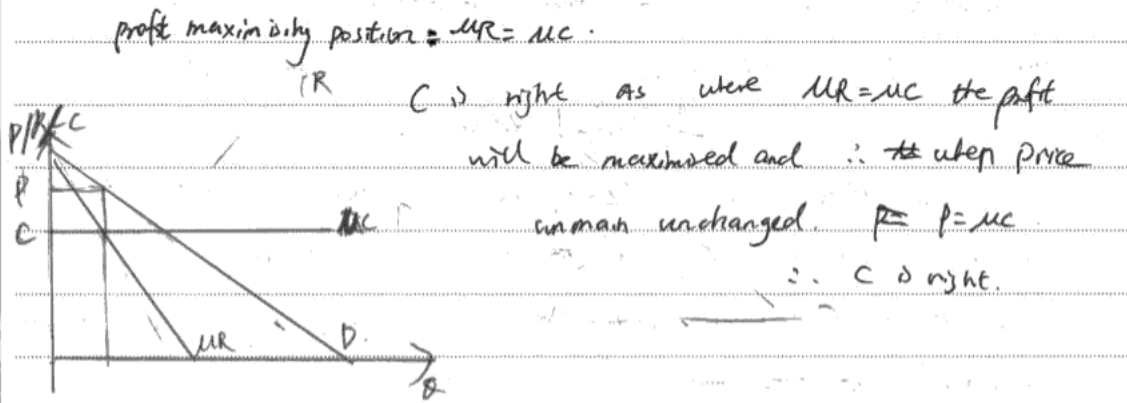 profit maximising position : MR = MC .
R
C is right As where MR = MC the profit
will be maximised and ∴ when price
unchanged. P = MC
∴ C is right.
C
P
C
MC
MR
D
Q